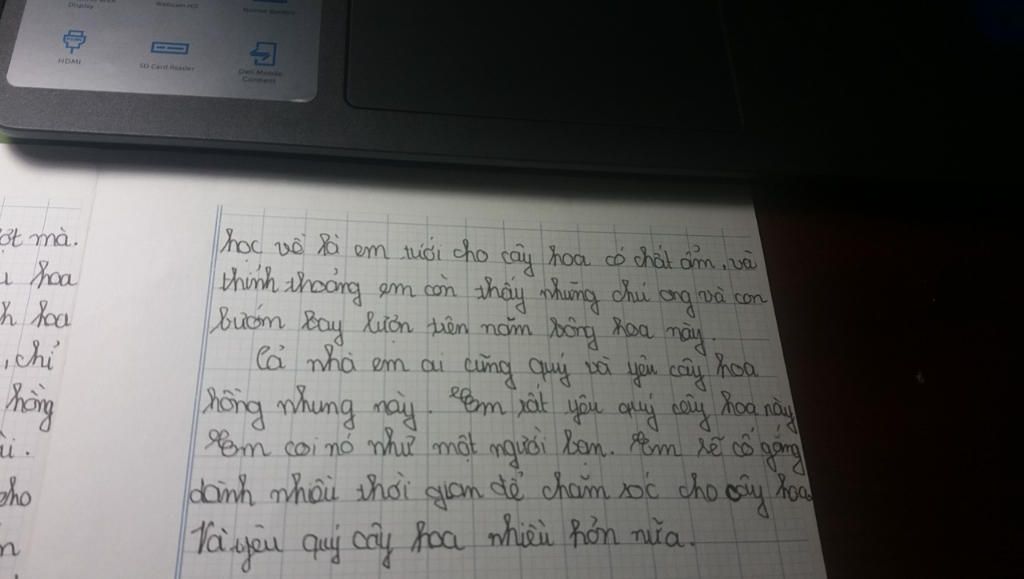 Display
Webcam HD
HDMI
SD Card Reader
Dell Mobile
Connect
ợt mà.
hoa
h hoa
, chỉ
hồng
ùi.
cho
n
học về là em tưới cho cây hoa có chất ẩm, và
thỉnh thoảng em còn thấy những chú ong và con
bướm bay lượn trên năm bông hoa này.
Cả nhà em ai cũng quý và yêu cây hoa
hồng nhung này. Em rất yêu quý cây hoa này
Em coi nó như một người bạn. Em sẽ cố gắng
dành nhiều thời gian để chăm sóc cho cây hoa
Và yêu quý cây hoa nhiều hơn nữa.